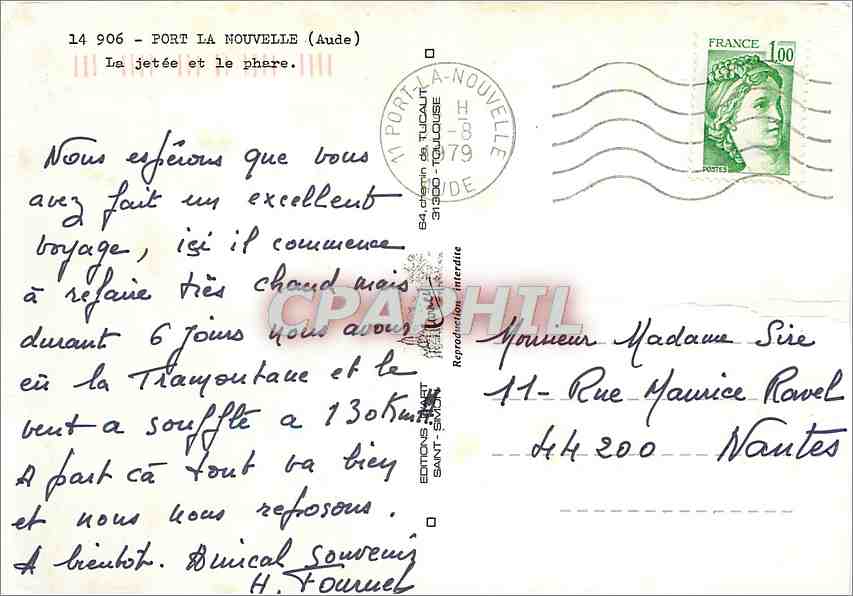 14 906 - PORT LA NOUVELLE (Aude)
La jetée et le phare.
Nous espérons que vous
avez fait un excellent
voyage, ici il commence
à refaire très chaud mais
durant 6 jours nous avons
eu la Tramontane et le
vent a soufflé a 130 Km/H
A part cà tout va bien
et nous nous reposons.
A bientot. Amical Souvenir
H. Fournel
11 PORT-LA-NOUVELLE
H
-8
1979
AUDE
FRANCE 1,00
POSTES
64, chemin de TUCAUT
31300 - TOULOUSE
Reproduction interdite
EDITIONS D'ART
SAINT-SIMON
CPAPHIL
Monsieur Madame Sire
11 - Rue Maurice Ravel
44200 Nantes